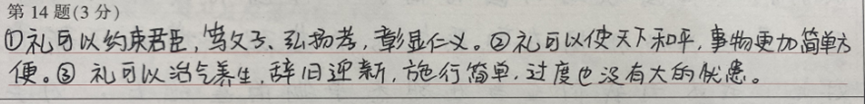 第14题(3分)
①礼可以约束君臣,笃父子、弘扬孝,彰显仁义。②礼可以使天下和平,事物更加简单方
便。③礼可以治气养生,辞旧迎新,施行简单,过度也没有大的忧患。